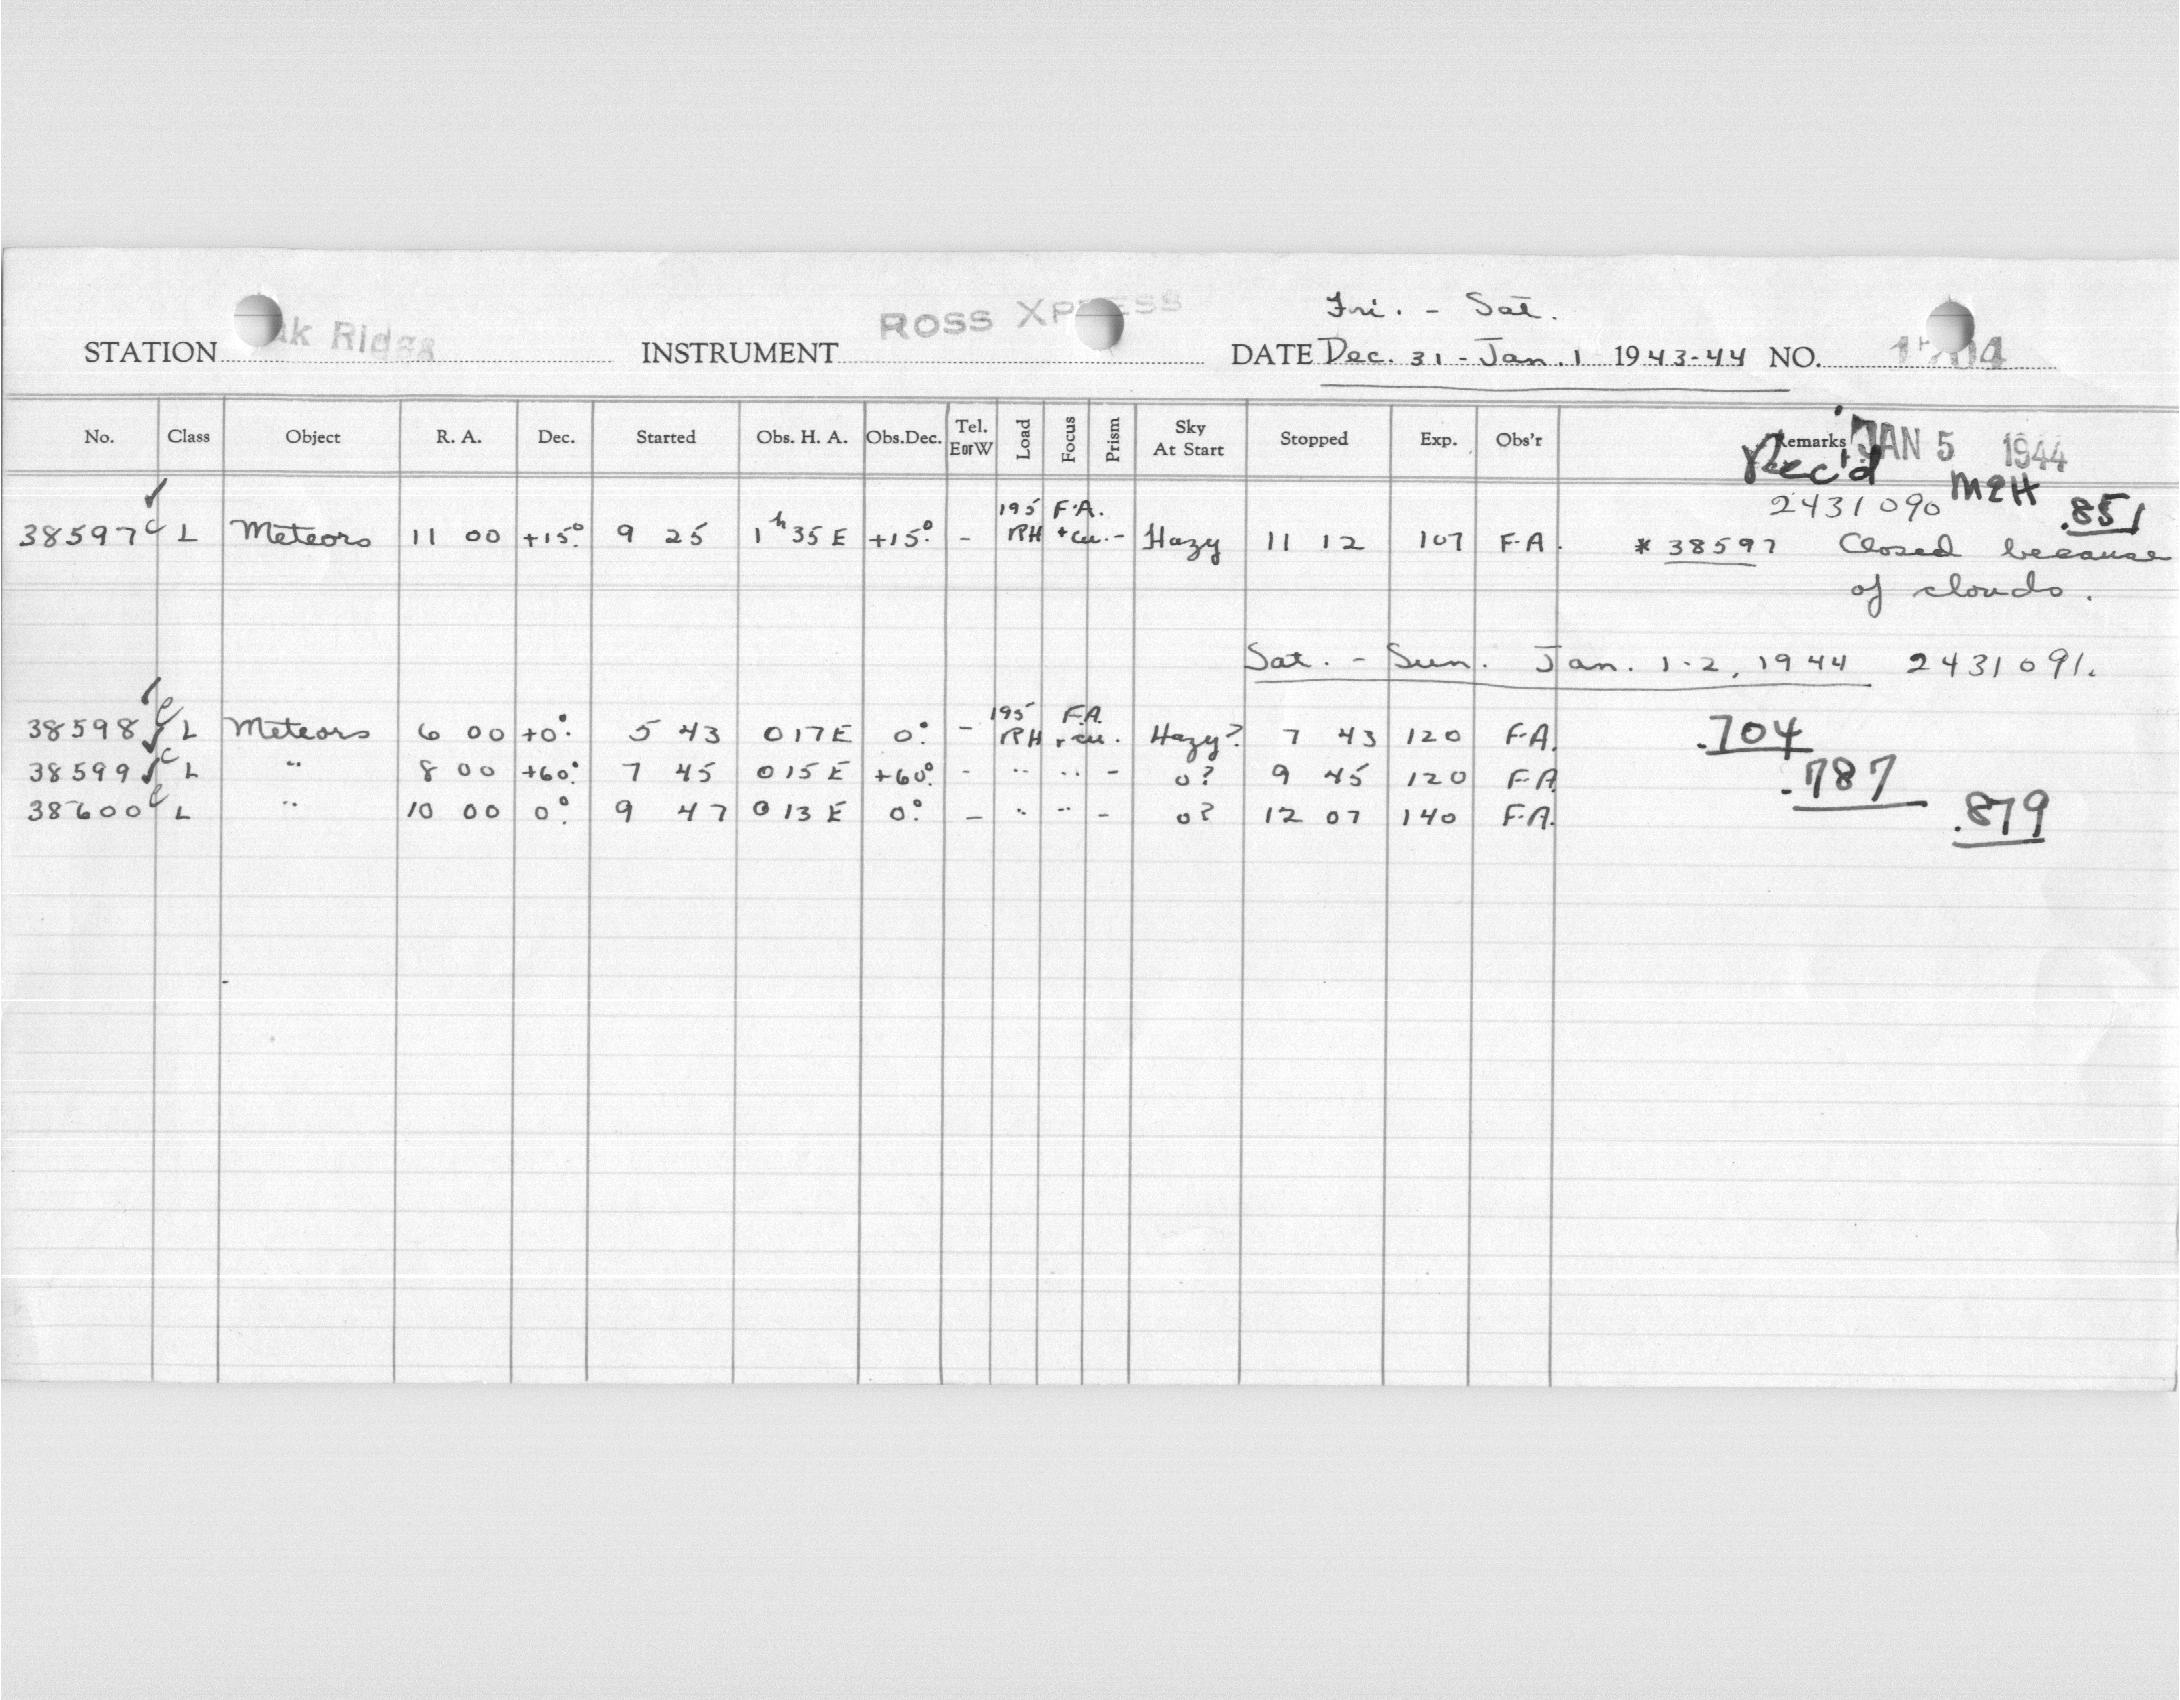 Fri. - Sat.
STATION Oak Ridge INSTRUMENT ROSS XPRESS DATE Dec. 31 - Jan. 1 1943-44 NO.
No. Class Object R. A. Dec. Started Obs. H. A. Obs.Dec. Tel. E or W Load Focus Prism Sky At Start Stopped Exp. Obs'r Remarks
Rec'd JAN 5 1944
2431090 .851
195 F.A.
38597 c L Meteors 11 00 +15° 9 25 1h 35 E +15° - RH + cu. - Hazy 11 12 107 F.A. * 38597 Closed because
of clouds.
Sat. - Sun. Jan. 1-2, 1944 2431091.
195 F.A.
38598 c L Meteors 6 00 +0° 5 43 0 17 E 0° - RH + cu. Hazy? 7 43 120 F.A. .704
38599 c L " 8 00 +60° 7 45 0 15 E +60° - " " - 0? 9 45 120 F.A. .787
38600 c L " 10 00 0° 9 47 0 13 E 0° - " " - 0? 12 07 140 F.A. .879